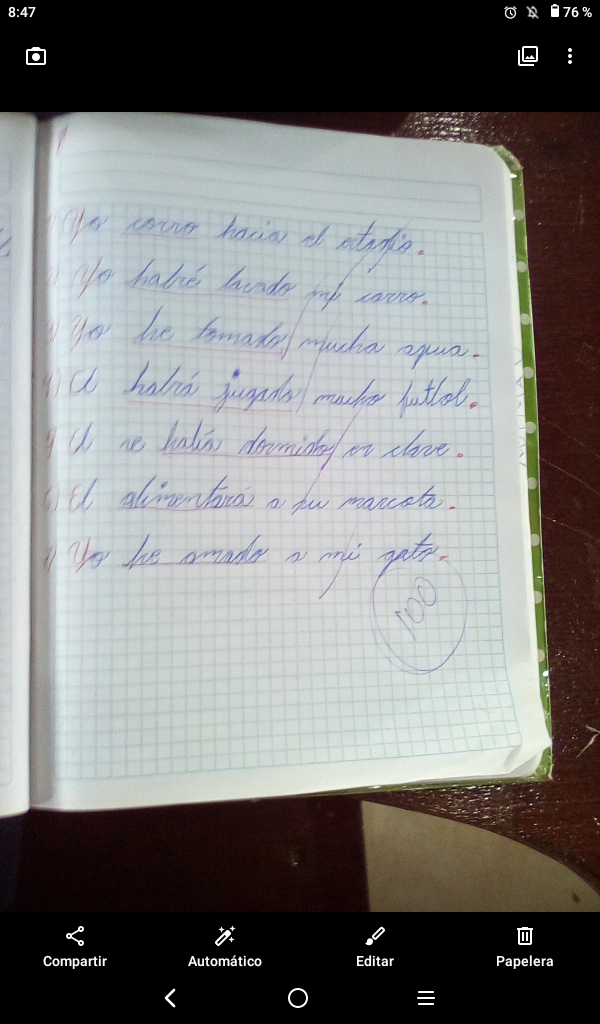 8:47
76 %
1) Yo corro hacia el estadio.
2) Yo habré lavado mi carro.
3) Yo he tomado mucha agua.
4) El habrá jugado mucho futbol.
5) El se había dormido en clave.
6) El alimentará a su mascota.
7) Yo he amado a mi gato.
100
Compartir
Automático
Editar
Papelera